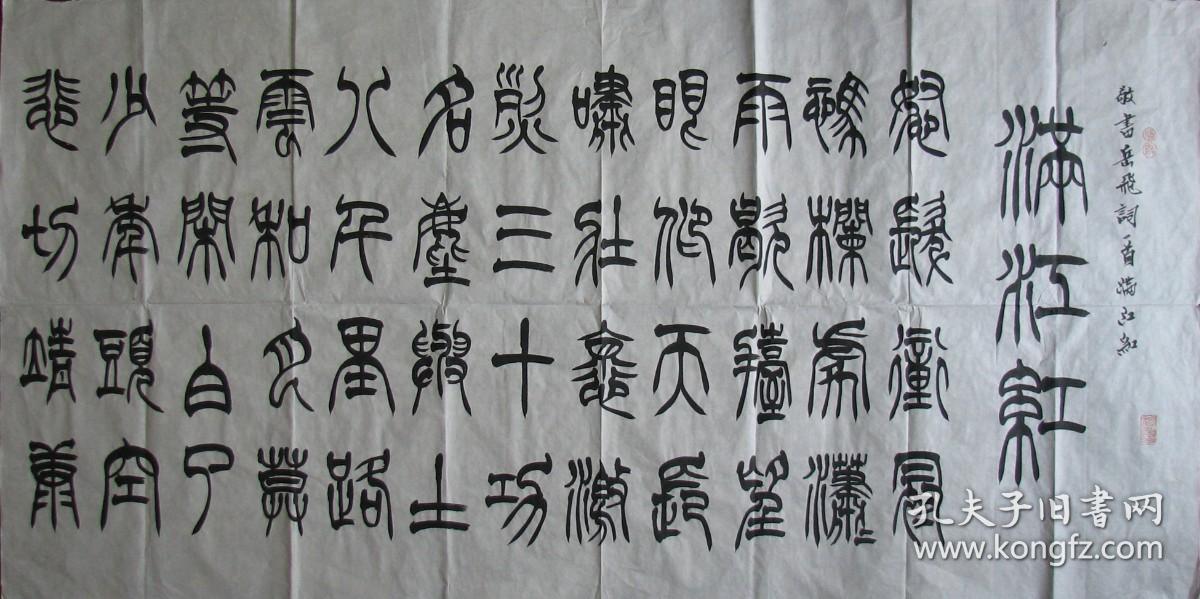 敬書岳飛詞一首滿江紅
滿江紅
怒髮衝冠
憑欄處瀟〻
雨歇擡望
眼仰天長
嘯壯懷激
烈三十功
名塵與土
八千里路
雲和月莫
等閒白了
少年頭空
悲切靖康
孔夫子旧书网
www.kongfz.com